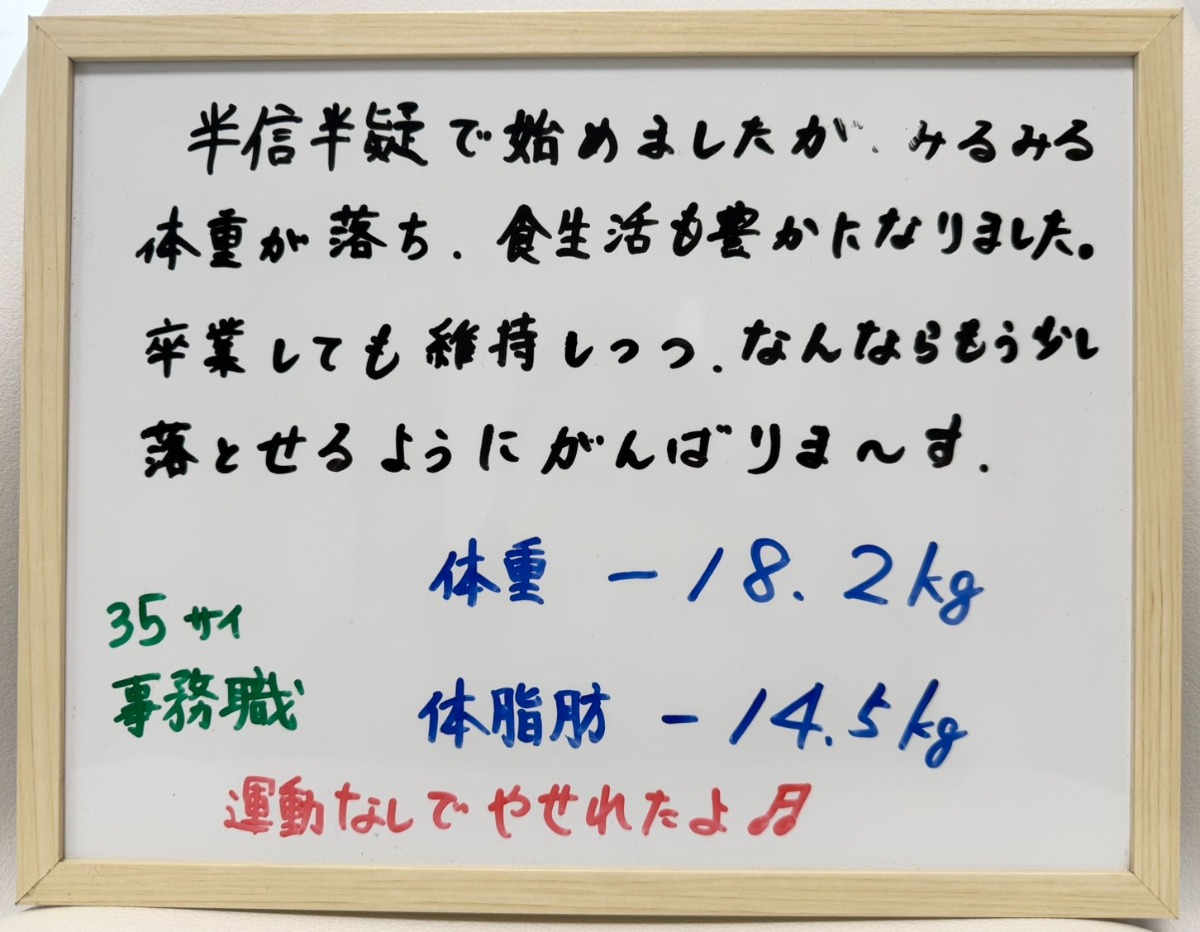 半信半疑で始めましたが、みるみる
体重が落ち、食生活も豊かになりました。
卒業しても維持しつつ、なんならもう少し
落とせるようにがんばりま〜す.
体重 -18.2kg
35サイ
事務職
体脂肪 -14.5kg
運動なしでやせれたよ♬